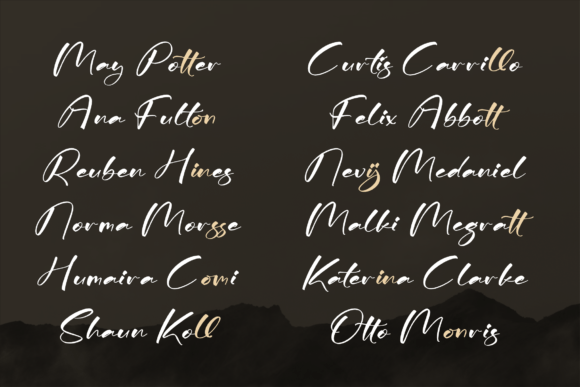 May Potter
Ana Fulton
Reuben Hines
Norma Morsse
Humaira Comi
Shaun Koll
Curtis Carrillo
Felix Abbott
Nevij Medaniel
Malki Megratt
Katerina Clarke
Otto Monris